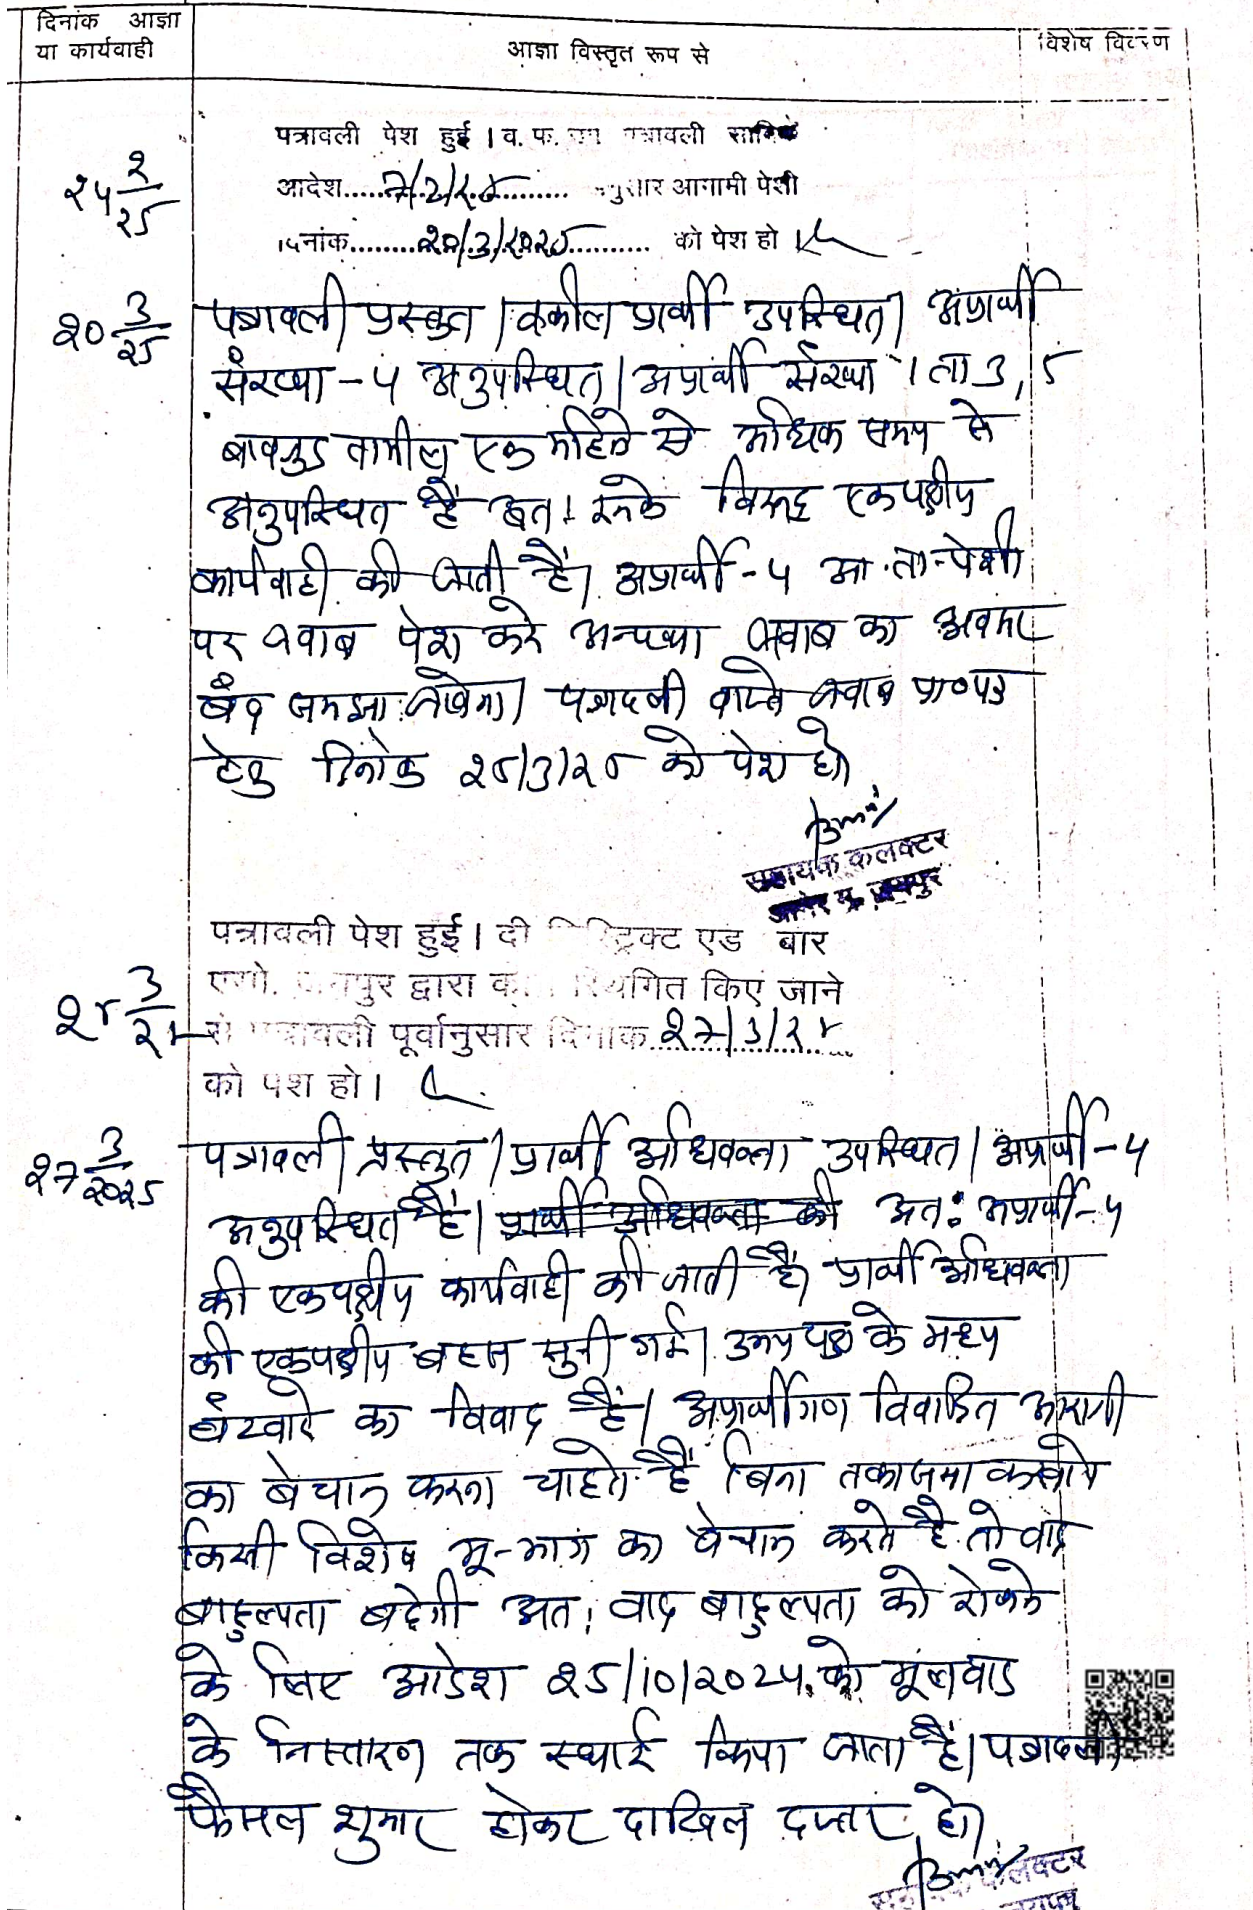 दिनांक आज्ञा
या कार्यवाही
आज्ञा विस्तृत रूप से
विशेष विवरण
पत्रावली पेश हुई । व. फ. पत्रावली
आदेश 7/2/25 आगामी पेशी
दिनांक 20/3/2025 को पेश हो
20 3/25
पत्रावली प्रस्तुत । वकील प्रार्थी उपस्थित । अप्रार्थी
संख्या - 4 अनुपस्थित । अप्रार्थी संख्या 1 ता 3, 5
बावजूद तामील एक महिने से अधिक समय से
अनुपस्थित हैं अतः इनके विरूद्ध एकपक्षीय
कार्यवाही की जाती हैं। अप्रार्थी - 4 आ.ता. पेशी
पर जवाब पेश करे अन्यथा जवाब का अवसर
बंद समझा जावेगा। पत्रावली वास्ते जवाब प्रा०पत्र
हेतु दिनांक 25/3/25 को पेश हो।
सहायक कलक्टर
पत्रावली पेश हुई । दी डिस्ट्रिक्ट एड बार
एसो. जयपुर द्वारा स्थगित किए जाने
25 3/25
से पत्रावली पूर्वानुसार दिनांक 27/3/25
को पेश हो ।
27 3/2025
पत्रावली प्रस्तुत । प्रार्थी अधिवक्ता उपस्थित । अप्रार्थी - 4
अनुपस्थित हैं। प्रार्थी अधिवक्ता की अतः अप्रार्थी - 4
की एकपक्षीय कार्यवाही की जाती हैं। प्रार्थी अधिवक्ता
की एकपक्षीय बहस सुनी गई। उभय पक्ष के मध्य
बंटवारे का विवाद हैं। अप्रार्थीगण विवादित आराजी
का बेचान करना चाहते हैं बिना तकासमा करवाये
किसी विशेष भू-भाग का बेचान करते है तो वाद
बाहुल्यता बढेगी अतः वाद बाहुल्यता को रोकने
के लिए आदेश 25/10/2024 को मूलवाद
के निस्तारण तक स्थाई किया जाता हैं। पत्रावली
फैसल शुमार होकर दाखिल दफ्तर हो।
कलक्टर